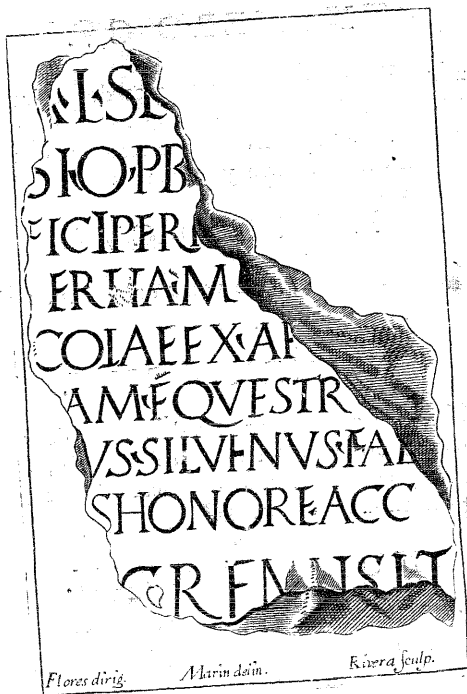 L·SE
IO·PB
ICIPERI
ERHAM
COLAEEX·AE
AM·EQVESTR
VS·SILVINVS·FAB
SHONORE·ACC
GREMISIT
Flores dirig.
Marin delin.
Rivera sculp.